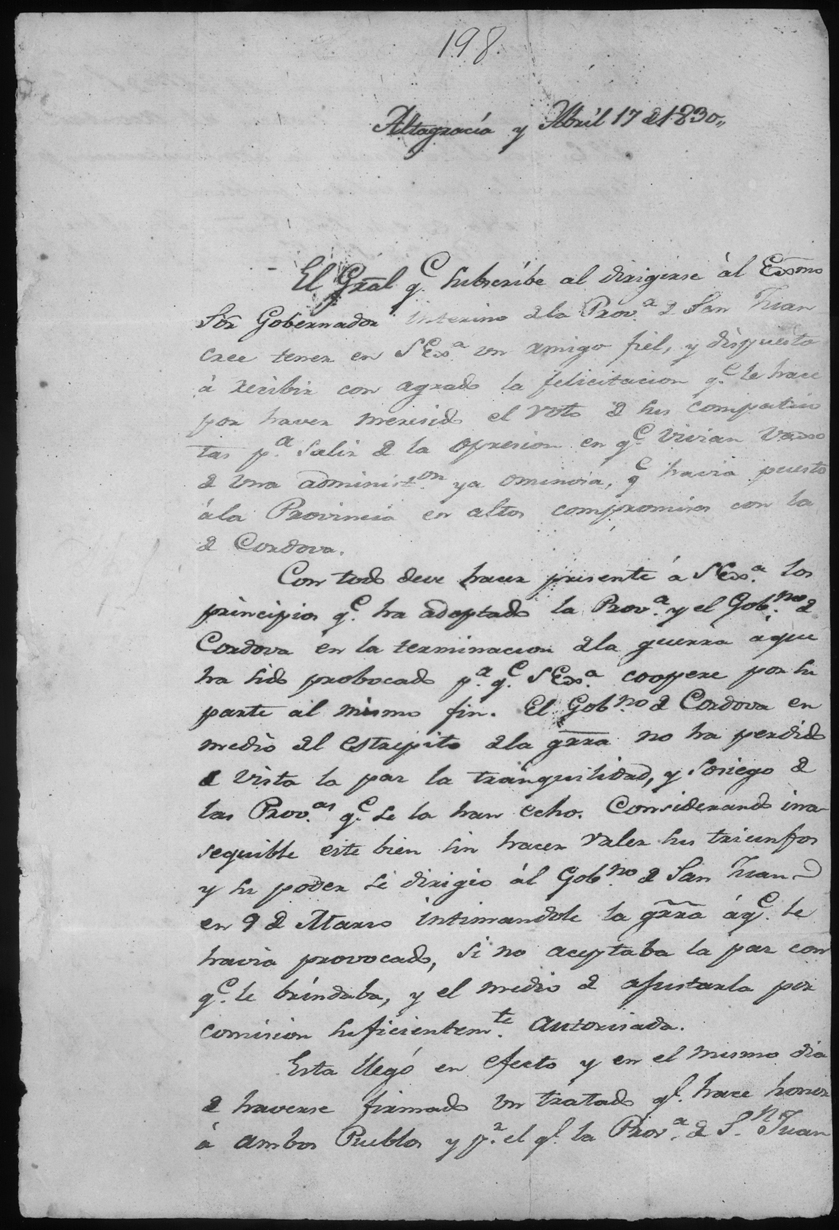 198
Altagracia y Abril 17 de 1830,,
El Gral q.e subscribe al dirigirse ál Exsmo
Sōr Gobernador interino dela Prov.a de San Juan
cree tener en S Ex.a un amigo fiel, y dispuesto
á recibir con agrado la felicitacion q.e le hace
por haver meresido el voto de sus compatrio
tas p.a salir de la opresion en q.e vivian
de una administ.on ya ominosa, q.e havia puesto
ála Provincia en altos compromisos con la
de Cordova.
Con todo deve hacer presente á S Ex.a los
principios q.e ha adoptado la Prov.a y el Gob.no de
Cordova en la terminacion dela guerra áque
ha sido probocado p.a q.e S Ex.a coopere por su
parte al mismo fin. El Gob.no de Cordova en
medio del estrepito dela grra no ha perdido
de vista la paz la tranquilidad, y sosiego de
las Prov.as q.e se la han echo. Considerando ina
sequible este bien sin hacer valer sus triunfos
y su poder se dirigio ál Gob.no de San Juan
en 9 de Marzo intimandole la grra áq.e le
havia provocado, si no aceptaba la paz con
q.e le brindaba, y el medio de ajustarla por
comision suficientem.te autorisada.
Esta llegó en efecto y en el mismo dia
de haverse firmado un tratado q.e hace honor
á ambos Pueblos y p.r el q.e la Prov.a de S.n Juan